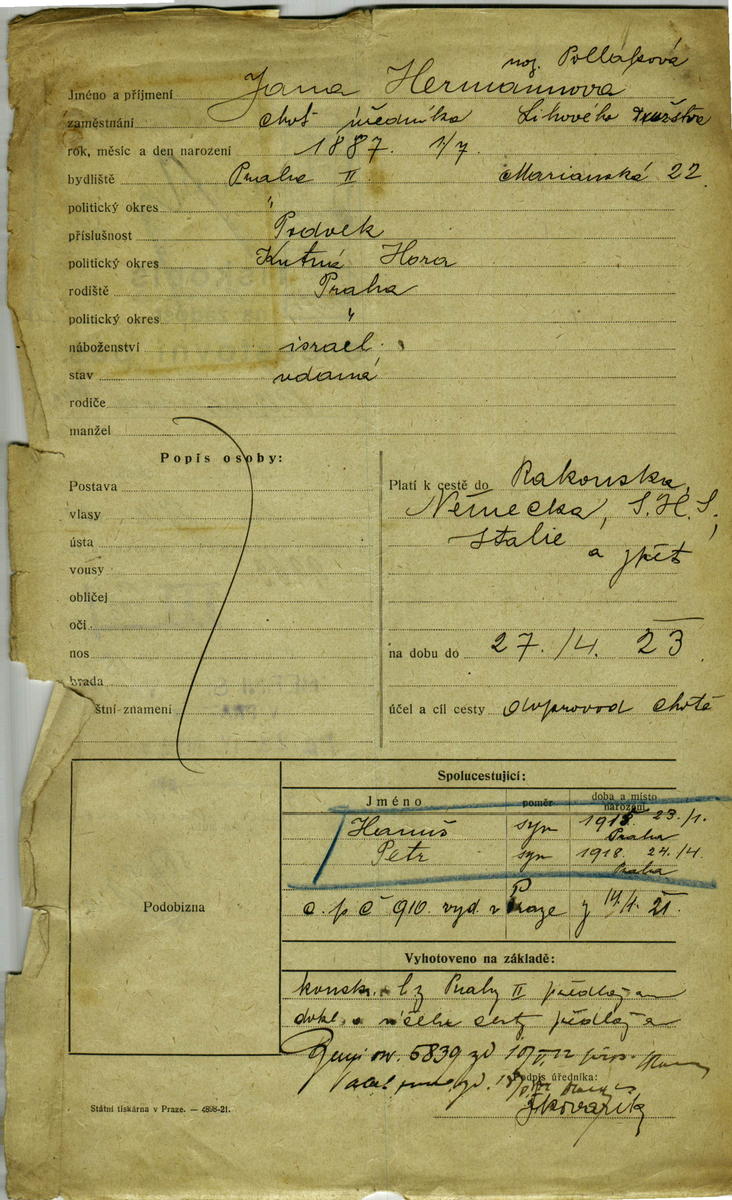 roz. Pollaková
Jméno a příjmení Jana Hermannova
zaměstnání choť úředníka Lihového družstva
rok, měsíc a den narození 1887. 1/7.
bydliště Praha II Marianská 22
politický okres "
příslušnost Podvek
politický okres Kutná Hora
rodiště Praha
politický okres "
náboženství israel.
stav vdaná
rodiče
manžel
Popis osoby:
Postava
vlasy
ústa
vousy
obličej
oči
nos
brada
štní znamení
Platí k cestě do Rakouska,
Německa, S.H.S,
Italie
a zpět
na dobu do 27./4. 23
účel a cíl cesty doprovod chotě
Podobizna
Spolucestující:
Jméno poměr doba a místo narození
Hanuš syn 23./1.
Praha
Petr syn 1918. 24./4.
Praha
c. p č 910. vyd. v Praze z 21.
Vyhotoveno na základě:
konskr. l z Prahy II
dokl. o účelu cesty
5839
Podpis úředníka:
Státní tiskárna v Praze. — 4898-21.